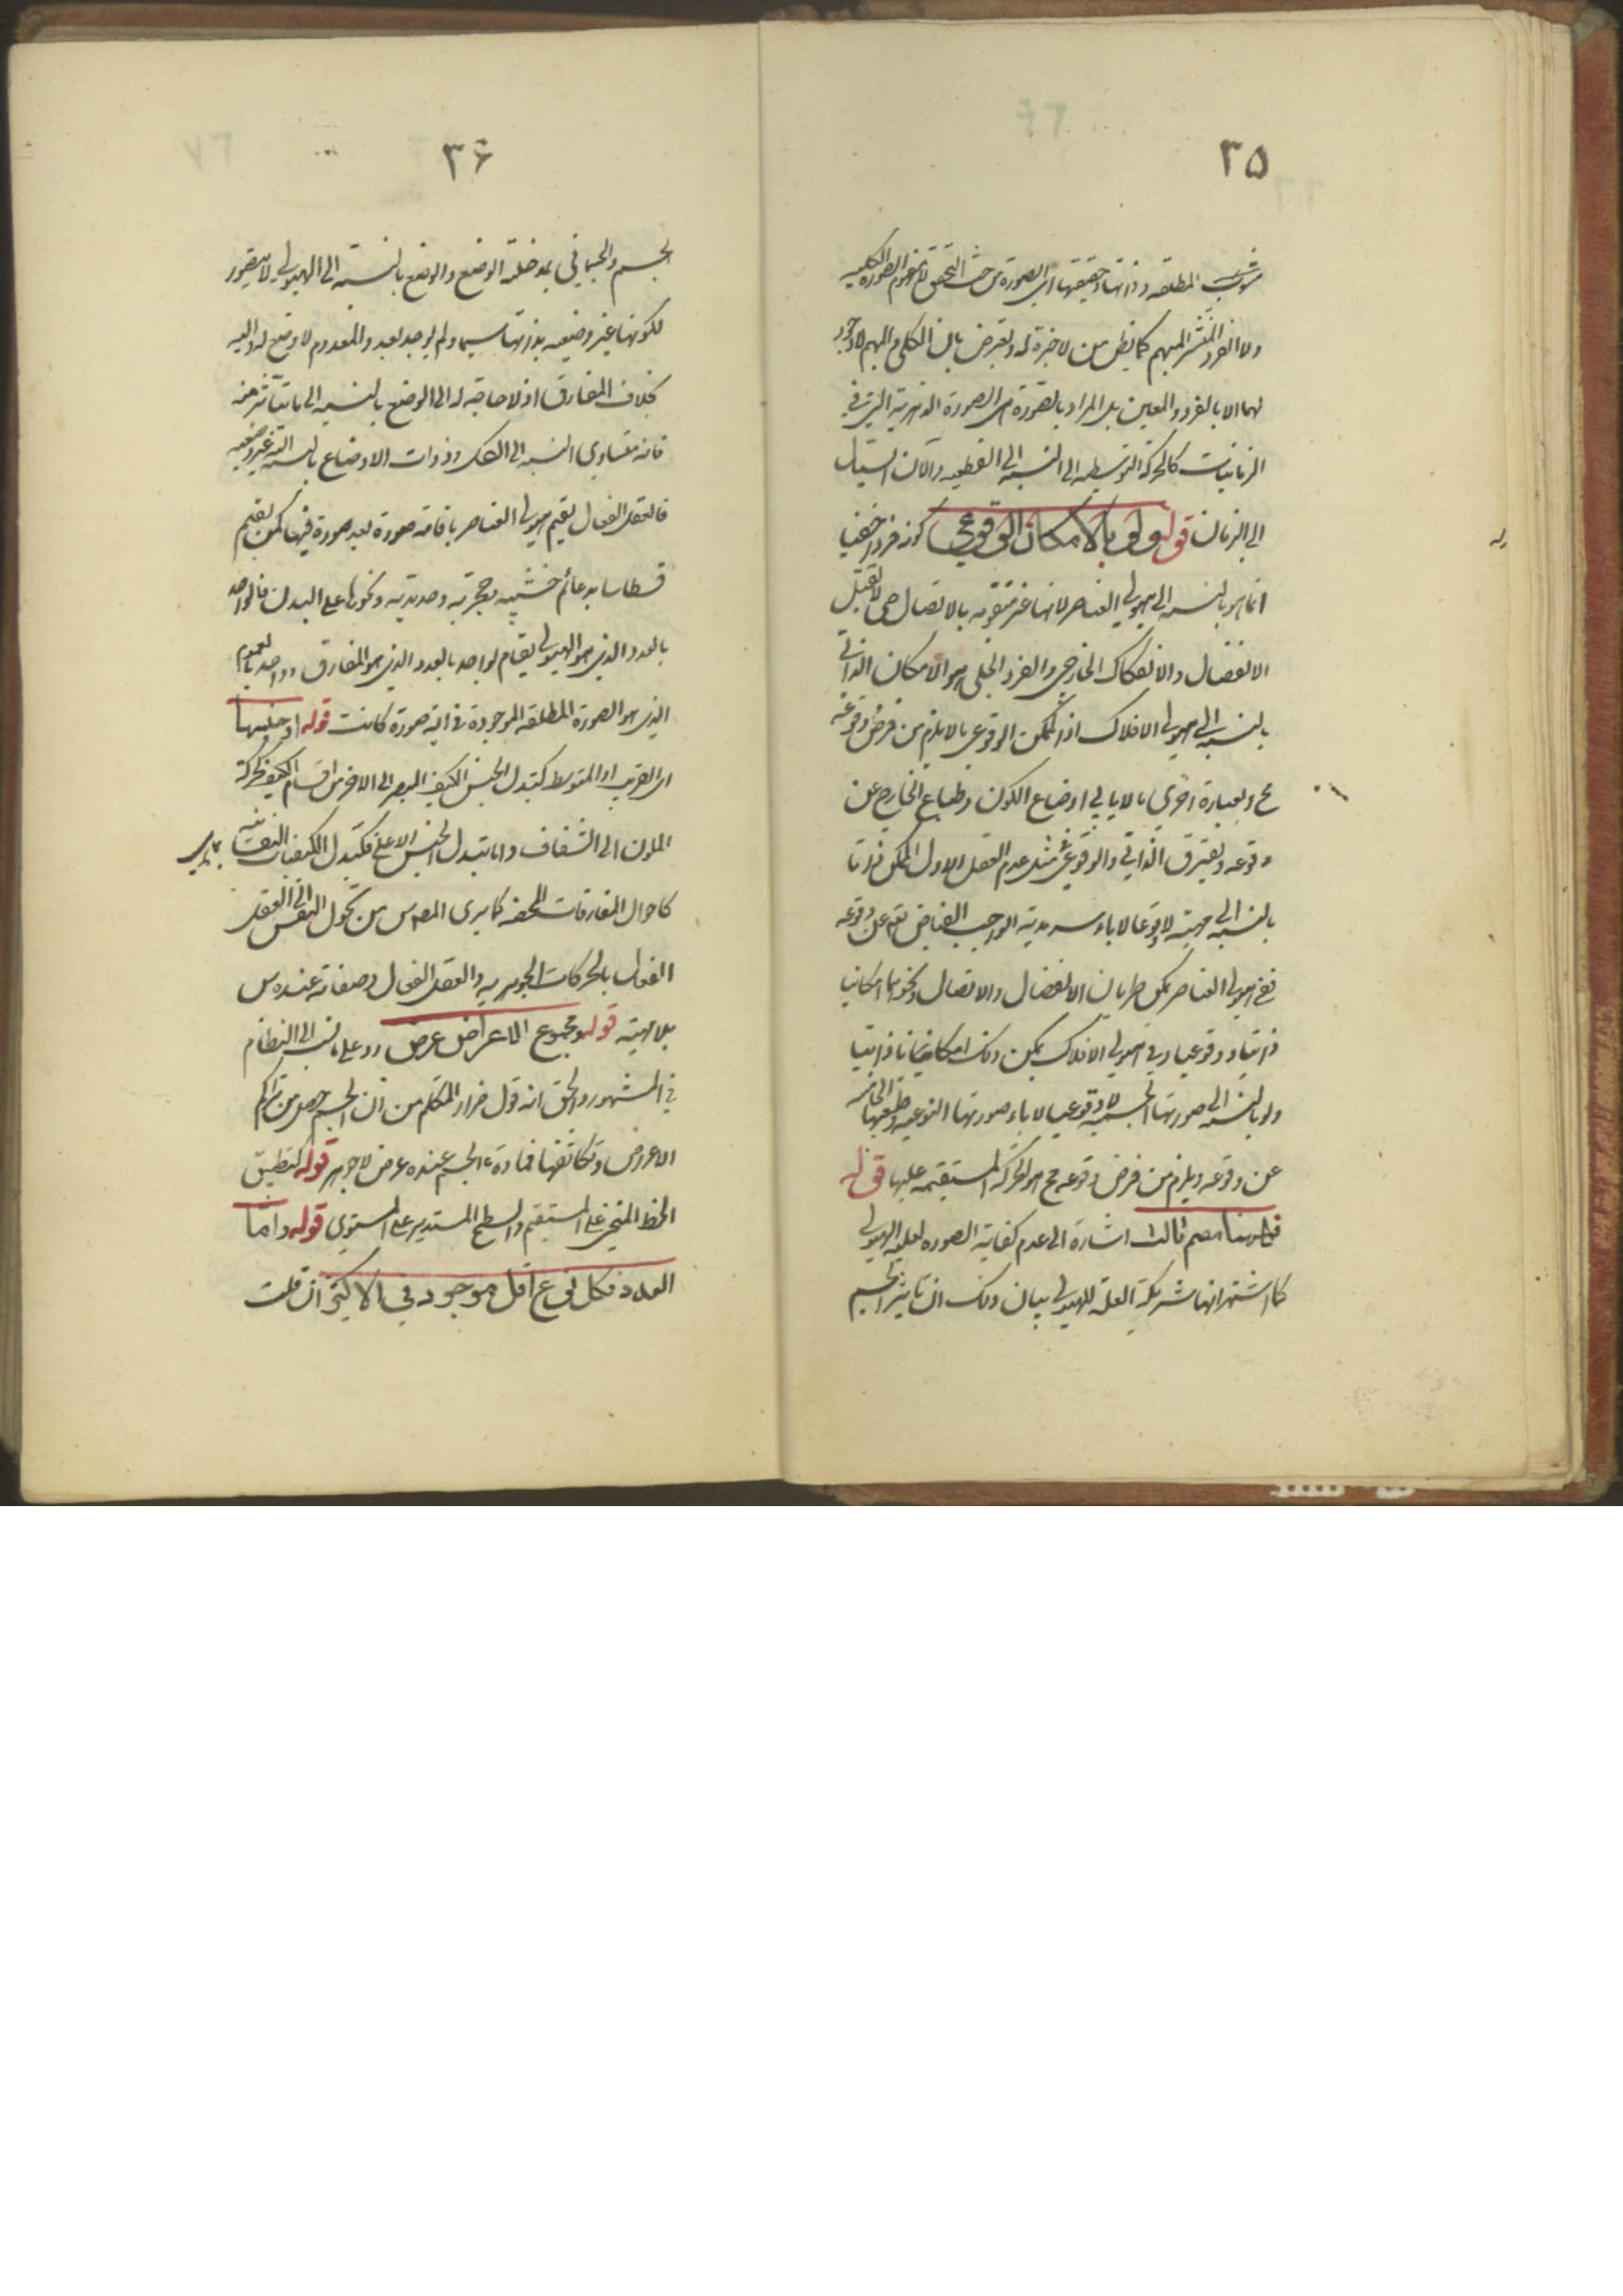 ٣٥
المطلقه وذاتها وحقيقتها اى الصورة من حيث التحقق لا مفهوم الصورة الكليه
ولا الفرد المنتشر المبهم كما يظن من لا خبرة له ويعترض بان الكلى والمبهم لا وجود
لهما الا بالفرد والمعين بل المراد بالصورة هى الصورة الدهرية التى فى
الزمانيات كالحركة التوسطيه الى النسبه الى القطعيه والآن السيال
الى الزمان قوله ولو بالامكان الوقوعى كونه فردا خفيا
انما هو بالنسبه الى هيولى العناصر لانها غير متقومه بالاتصال حتى لا تقبل
الانفصال والانفكاك الخارجى والفرد الجلى هو الامكان الذاتى
بالنسبه الى هيولى الافلاك اذ الممكن الوقوعى ما لا يلزم من فرض وقوعه
مح وبعبارة اخرى ما لا يابى اوضاع الكون وطباع الخارج عن
وقوعه ويفترق الذاتى والوقوعى فى مثل عدم العقل الاول الممكن ذاتا
بالنسبه الى مهيته لا وقوعا لاباء سرمدية الواجب الفياض تع عن وقوعه
ففى هيولى العناصر يمكن طريان الانفصال والاتصال ونحوهما امكانا
ذاتيا ووقوعيا وفى هيولى الافلاك يمكن ذلك امكانا ذاتيا
ولو بالنسبه الى صورتها الجسميه لا وقوعيا لاباء صورتها النوعيه وطبيعتها الخامسه
عن وقوعه ويلزم من فرض وقوعه مح هو الحركة المستقيمه عليها قوله
فههنا مصمم ثالث اشارة الى عدم كفاية الصوره لعليه الهيولى
كما اشتهر انها شريكة العلة للهيولى بيان ذلك ان تاثير الجسم
٣۶
الجسم والجسمانى بمدخلية الوضع والوضع بالنسبة الى الهيولى لا يتصور
لكونها غير وضعيه بذاتها سيما ولم يوجد بعد والمعدوم لا وضع له واليه
بخلاف المفارق اذ لا حاجة له الى الوضع بالنسبه الى ما يتاثر منه
فانه متساوى النسبه الى الكل وذوات الاوضاع بالنسبه اليه غير وضعيه
فالعقل الفعال يقيم هيولى العناصر بافاضة صورة بعد صورة فيها كمن يقيم
فسطاسا بدعائم خشبيه وحجريه وحديديه ونحوها على البدل فالواحد
بالعدد الذى هو الهيولى يقام لواحد بالعدد الذى هو المفارق وواحد بالعموم
الذى هو الصورة المطلقه الموجودة فى اية صورة كانت قوله او جنسها
اى القريب او المتوسط كتبدل الجنس الكيف المبصر الى الاخر من اقسام الكيف كحركة
الملون الى الشفاف واما تبدل الجنس الاعلى فكتبدل الكيفيات النفسانيه
كاحوال المفارقات المحضه كما يرى المص س من تحول النفس الى العقل
الفعال بالحركات الجوهريه والعقل الفعال وصفاته عنده س
بلا مهية قوله ومجموع الاعراض عرض رد على ما نسب الى النظام
فى المشهور والحق انه قول ضرار المتكلم من ان الجسم حصل من تراكم
الاعراض وتكاثفها فمادة الجسم عنده عرض لا جوهر قوله كتطبيق
الخط المنحنى على المستقيم والسطح المستدير على المستوى قوله واما
العدد فكل نوع اقل موجود فى الاكثر ان قلت